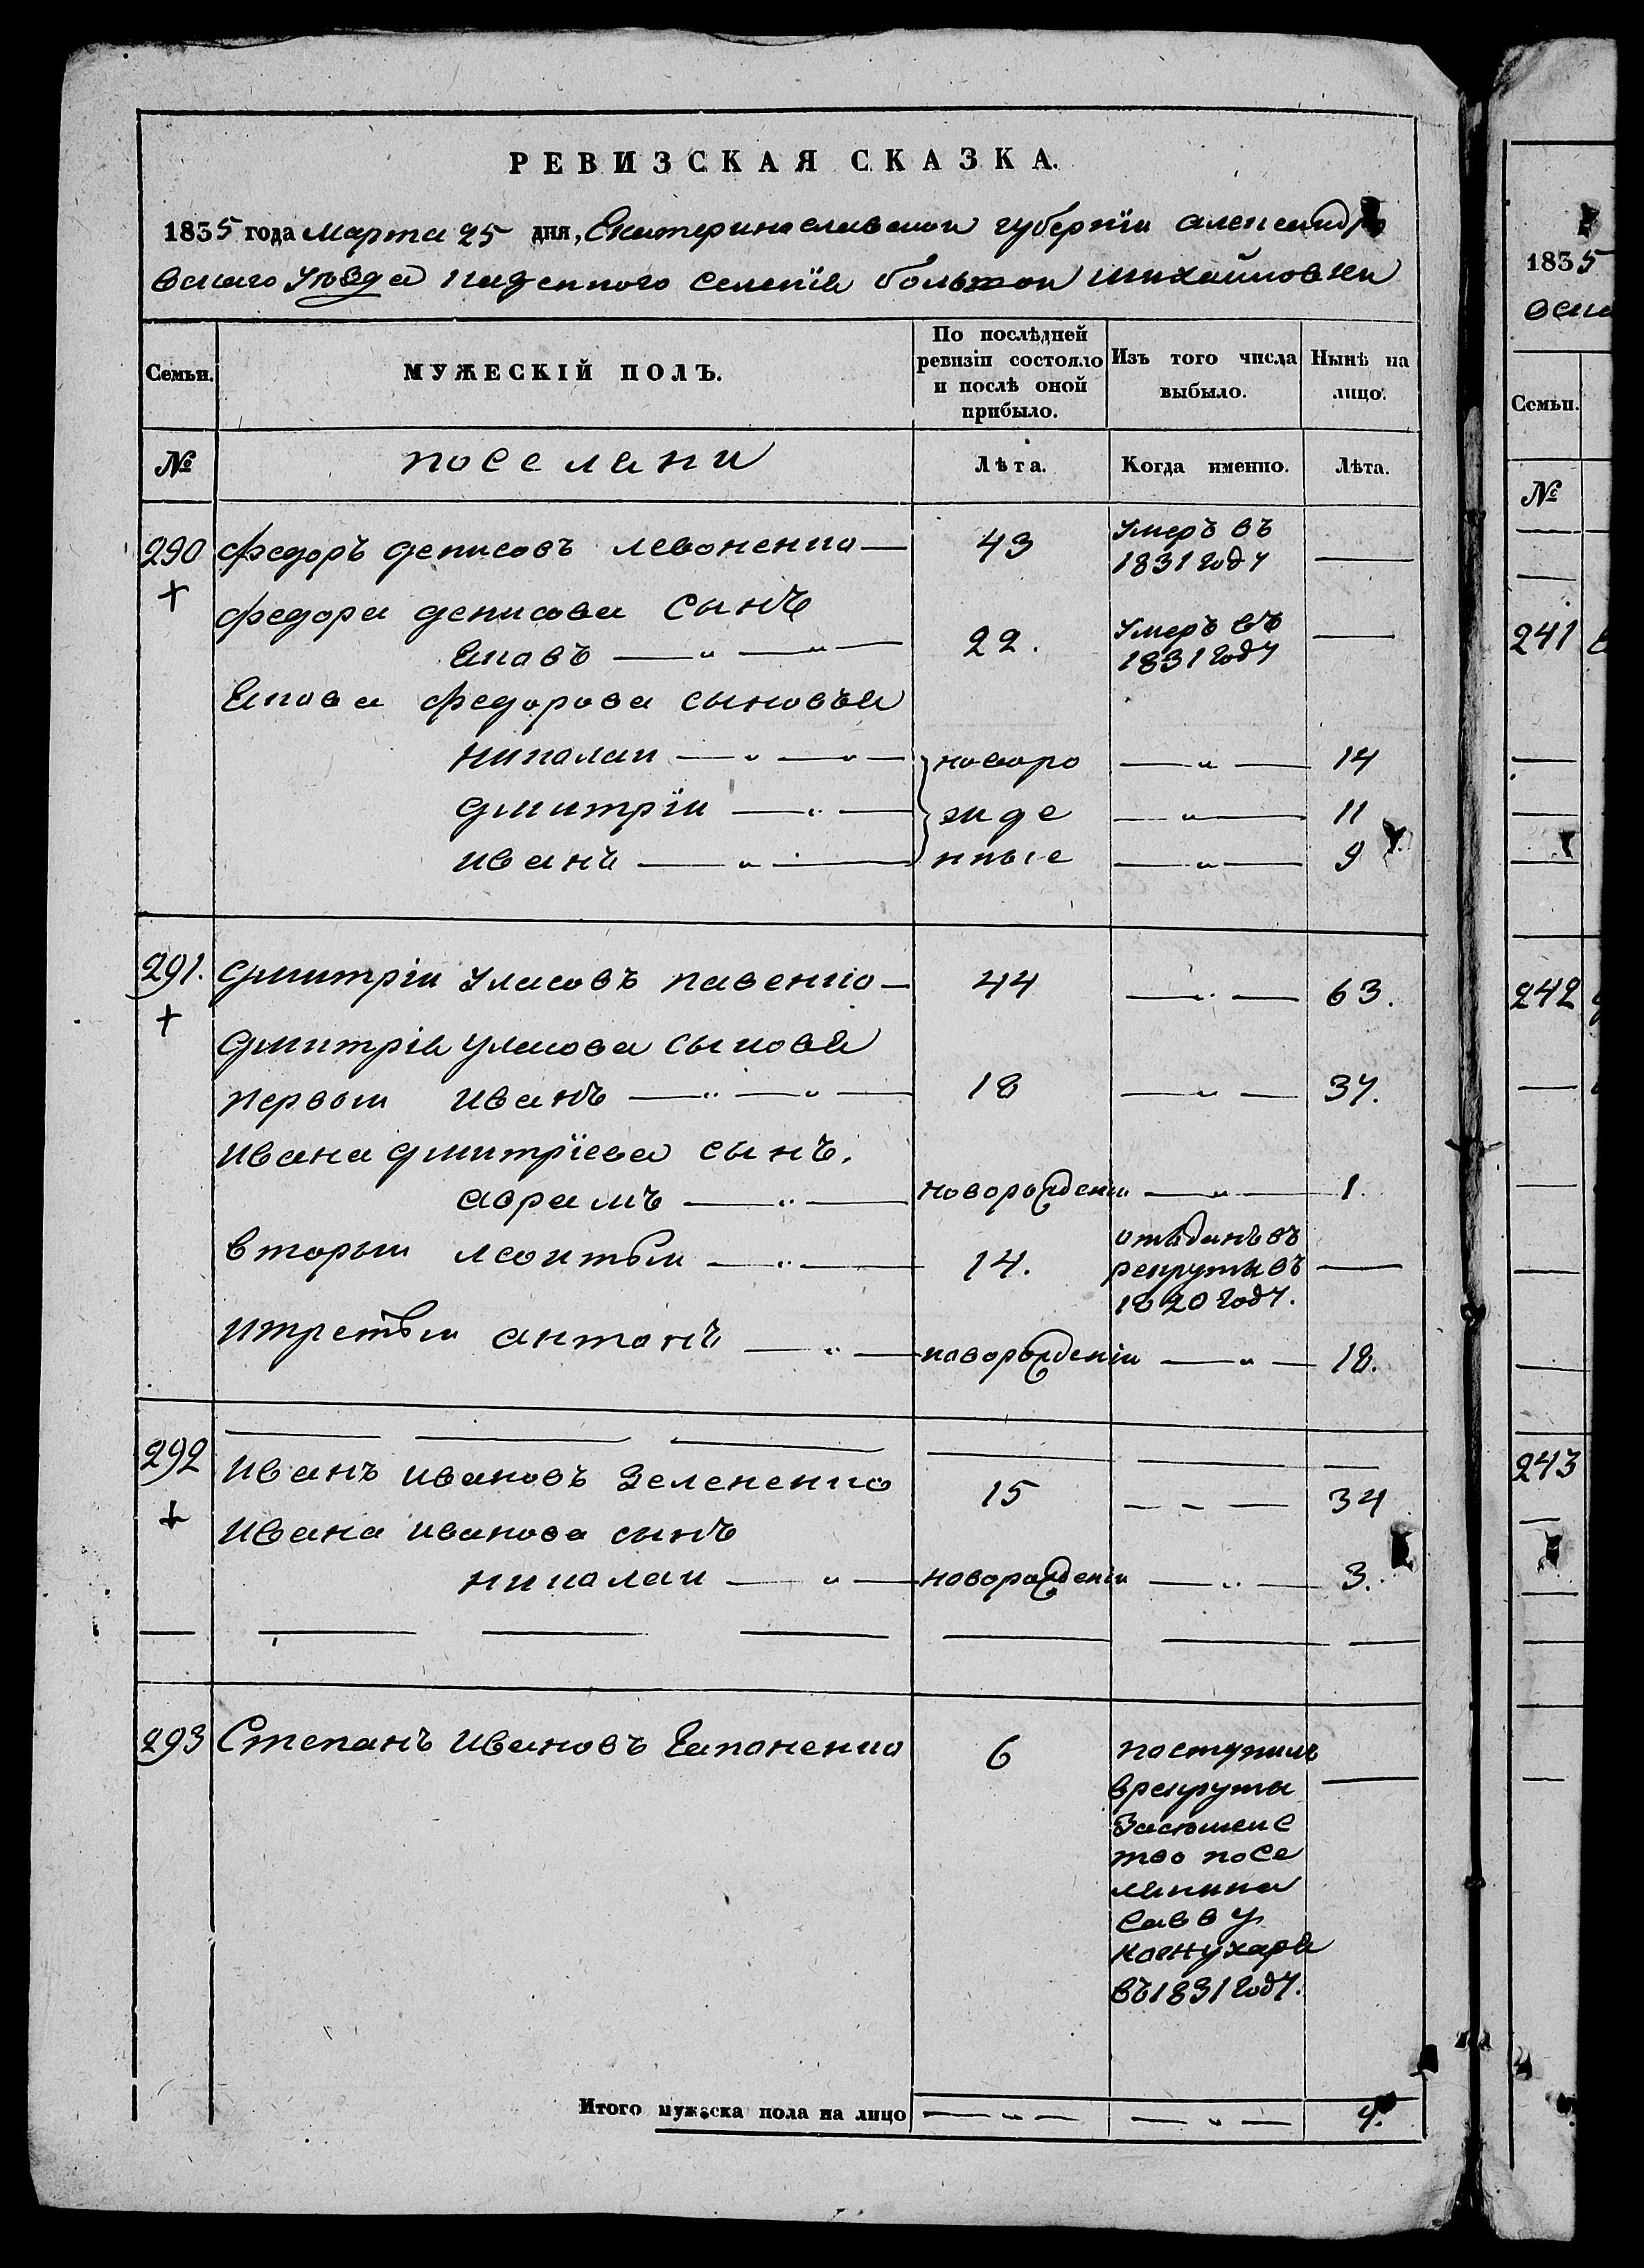 РЕВИЗСКАЯ СКАЗКА.
1835 года марта 25 дня, Екатеринославской губернїи александро
вскаго Уѣзда казенного селенїя большой михайловки
Семьи. МУЖЕСКІЙ ПОЛЪ. По послѣдней ревизіи состояло и послѣ оной прибыло. Изъ того числа выбыло. Ныпѣ на лицо.
№ поселяни Лѣта. Когда именно. Лѣта.
290 федоръ денисовъ левоненко 43 Умеръ въ 1831 году —
федора денисова сынъ
Яковъ 22. Умеръ въ 1831 году —
Якова федорова сыновья
николаи новоро 14
дмитрїи жде 11
иванъ нные 9
291. дмитрїи Уласовъ павенко 44 63.
дмитрїя уласова сыновя
первыи иванъ 18 37.
ивана дмитрїева сынъ.
аврамъ новорожденїи 1.
вторыи леонтьи 14. отъданъ въ рекруты въ 1820 году. —
итретьи антонъ новорожденїи 18.
292 иванъ ивановъ Зелененко 15 34
ивана иванова сынъ
николаи новорожденїи 3.
293 Степанъ ивановъ Гапоненко 6 поступилъ
врекруты
тво посе
лянина
савву
кожухаря
въ 1831 году.
Итого мужеска пола на лицо
1835
Семьи.
№
241
242
243